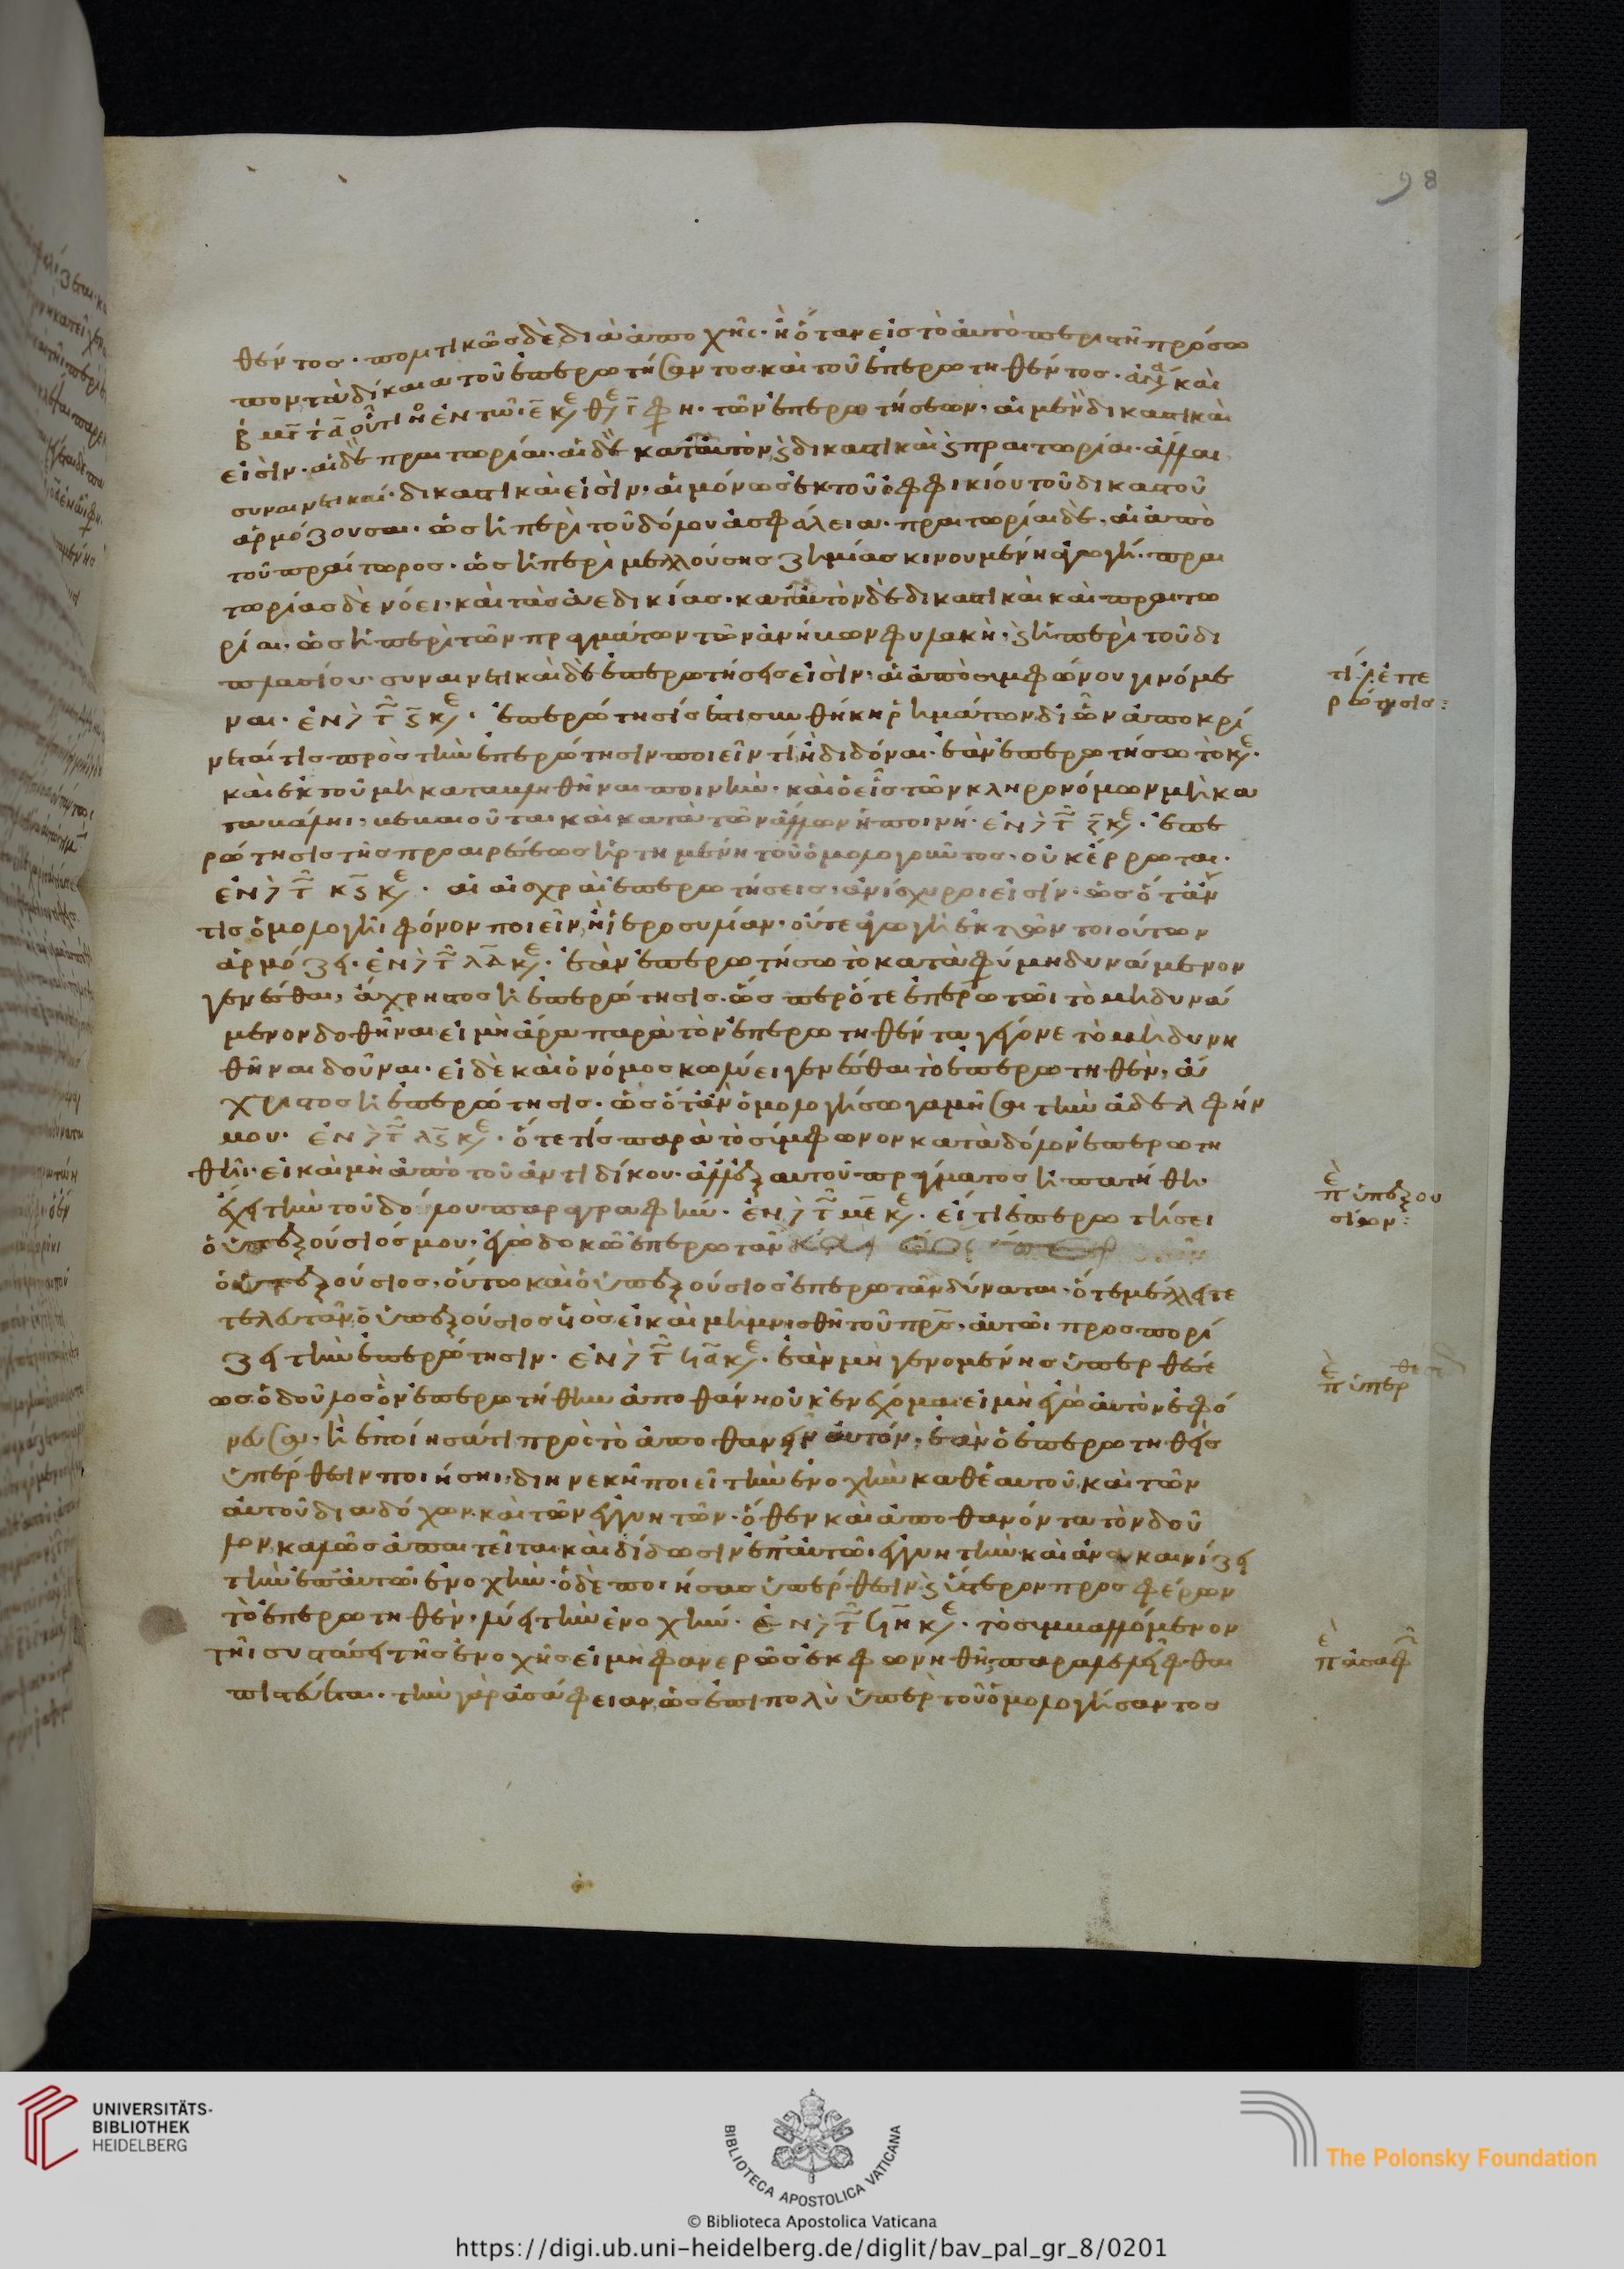 98
θέντος. πολιτικῶς δὲ, διὰ ἀποχῆς. ἢ ὅταν εἰς τὸ αὐτὸ περιστῆ πρόσω
πον τὰ δίκαια τοῦ ἐπερωτήσαντος καὶ τοῦ ἐπερωτηθέντος. καὶ
τῶν ἐπερωτήσεων. αἱ μὲν δικαστικαὶ
εἰσὶν. αἱ δὲ πραιτωρίαι. αἱ δὲ κατὰ ταυτὸν ϛ δικαστικαὶ ϛ πραιτωρίαι. ἄλλαι
συναινετικαί. δικαστικαὶ εἰσὶν, αἱ μόνως ἐκ τοῦ ὀφφικίου τοῦ δικαστοῦ
ἁρμόζουσαι. ὡς ἡ περὶ τοῦ δόλου ἀσφάλεια. πραιτωρίαι δὲ, αἱ ἀπὸ
τοῦ πραίτωρος. ὡς ἡ περὶ μελλούσης ζημίας κινουμένη ἀγωγή. πραι
τωρίας δὲ νόει, καὶ τὰς ἀεδικίας. κατὰ ταυτὸν δὲ δικαστικαὶ καὶ πραιτω
ρίαι. ὡς ἡ περὶ τῶν πραγμάτων τῶν ἀνήκων φυλακὴ. ϛ ἡ περὶ τοῦ δι
πλασίου. συναινετικαὶ δὲ ἐπερωτήσεις εἰσὶν, αἱ ἀπὸ συμφώνου γινόμε
ναι. ἐν τ ϛ κε. ἐπερώτησίς ἐστι συνθήκη ῥημάτων δι ὧν ἀποκρί
νεταί τις πρὸς τὴν ἐπερώτησιν ποιεῖν τι ἢ διδόναι. ἐὰν ἐπερωτήσω τὸ κε.
καὶ ἐκ τοῦ μὴ καταβληθῆναι ποινὴν. καὶ ὁ εἷς τῶν κληρονόμων μὴ κα
ταβάλῃ, βεβαιοῦται καὶ κατὰ τῶν ἄλλων ἡ ποινή. ἐν τ ζ κε. ἐπε
ρώτησις τῆς προαιρέσεως ἠρτημένη τοῦ ὁμολογοῦντος, οὐκ ἔρρωται.
ἐν τ κϛ κε. αἱ αἰσχραὶ ἐπερωτήσεις, ἀνίσχυροι εἰσίν. ὡς ὅτἂν
τις ὁμολογῆι φόνον ποιεῖν, ἢ ἱεροσυλίαν. οὔτε ἀγωγὴ ἐκ τῶν τοιούτων
ἁρμόζει. ἐν τ λδ κε. ἐὰν ἐπερωτήσω τὸ κατὰ φύσιν μὴ δυνάμενον
γενέσθαι, ἄχρηστος ἡ ἐπερώτησις. ὥσπερ ὅτε ἐπερωτῶι τὸ μὴ δυνά
μενον δοθῆναι εἰ μὴ ἄρα παρὰ τὸν ἐπερωτηθέντα γέγονε τὸ μὴ δυνη
θῆναι δοῦναι. εἰ δὲ καὶ ὁ νόμος κωλύει γενέσθαι τὸ ἐπερωτηθὲν, ἄ
χρηστος ἡ ἐπερώτησις. ὡς ὅτἂν ὁμολογήσω γαμῆσαι τὴν ἀδελφήν
μου. ἐν τ λϛ κε. ὅτε τίς παρὰ τὸ σύμφωνον κατὰ δόλον ἐπερωτη
θῆι. εἰ καὶ μὴ ἀπὸ τοῦ ἀντιδίκου. ἀλλ ἐξ αυτοῦ πραγματος ἠπατήθη.
ἔχει τὴν τοῦ δόλου παραγραφήν. ἐν τ με κε. εἴ τι ἐπερωτήσει
ὁ ὑπεξούσιός μου. ἐγὼ δοκῶ ἐπερωτᾶν
ὁ ὑπεξούσιος, οὕτω καὶ ὁ ὑπεξούσιος ἐπερωτᾶν δύναται. ὅτε μέλλει τε
τελευτᾶν ὁ ὑπεξούσιος ὑιὸς εἰ καὶ μὴ μνησθῆ τοῦ πρς, αὐτῶι προσπορί
ζει τὴν ἐπερώτησιν. ἐν τ ϟα κε. ἐὰν μὴ γενομένης ὑπερθέσε
ως ὁ δοῦλος ὃν ἐπερωτήθην ἀποθάνη οὐκ ἐνέχομαι εἰ μὴ ἐγὼ αὐτὸν ἐφό
νευσα. ἢ ἐποίησά τι πρὸς τὸ ἀποθανεῖν αὐτόν, ἐὰν ὁ ἐπερωτηθεὶς
ὑπέρθεσιν ποιήσηι, διηνεκῆ ποιεῖ τὴν ἐνοχὴν καθ ἑαυτοῦ, καὶ τῶν
αὐτοῦ διαδόχων, καὶ τῶν ἐγγυητῶν. ὅθεν καὶ ἀποθανόντα τὸν δοῦ
λον, καλῶς ἀπαιτεῖται, καὶ δίδωσιν ἐπ αὐτῶ. ἐγγυητὴν, καὶ ἀνακαινίζει
τὴν ἐπ αὐτῶ. ἐνοχὴν. ὁ δὲ ποιήσας ὑπέρθεσιν, ϛ ὕστερον προσφέρων
τὸ ἐπερωτηθὲν, λύει τὴν ἐνοχήν. ἐν τ ϟη κε. τὸ συμβαλλόμενον
τῆι συστάσει τῆς ἐνοχῆς εἰ μὴ φανερῶς ἐκφωνηθῆ, παραλελεῖφθαι
πιστεύεται. τὴν γὰρ ἀσάφειαν, ὡς ἐπιπολὺ ὑπὲρ τοῦ ὁμολογήσαντος
τί ἐπε
ρώτησις:
ὲπ ὑπεξου
σίων:
ὲπ ὑπερθε
ὲπ ἀσαφ
UNIVERSITÄTS-
BIBLIOTHEK
HEIDELBERG
BIBLIOTECA APOSTOLICA VATICANA
© Biblioteca Apostolica Vaticana
The Polonsky Foundation
https://digi.ub.uni-heidelberg.de/diglit/bav_pal_gr_8/0201